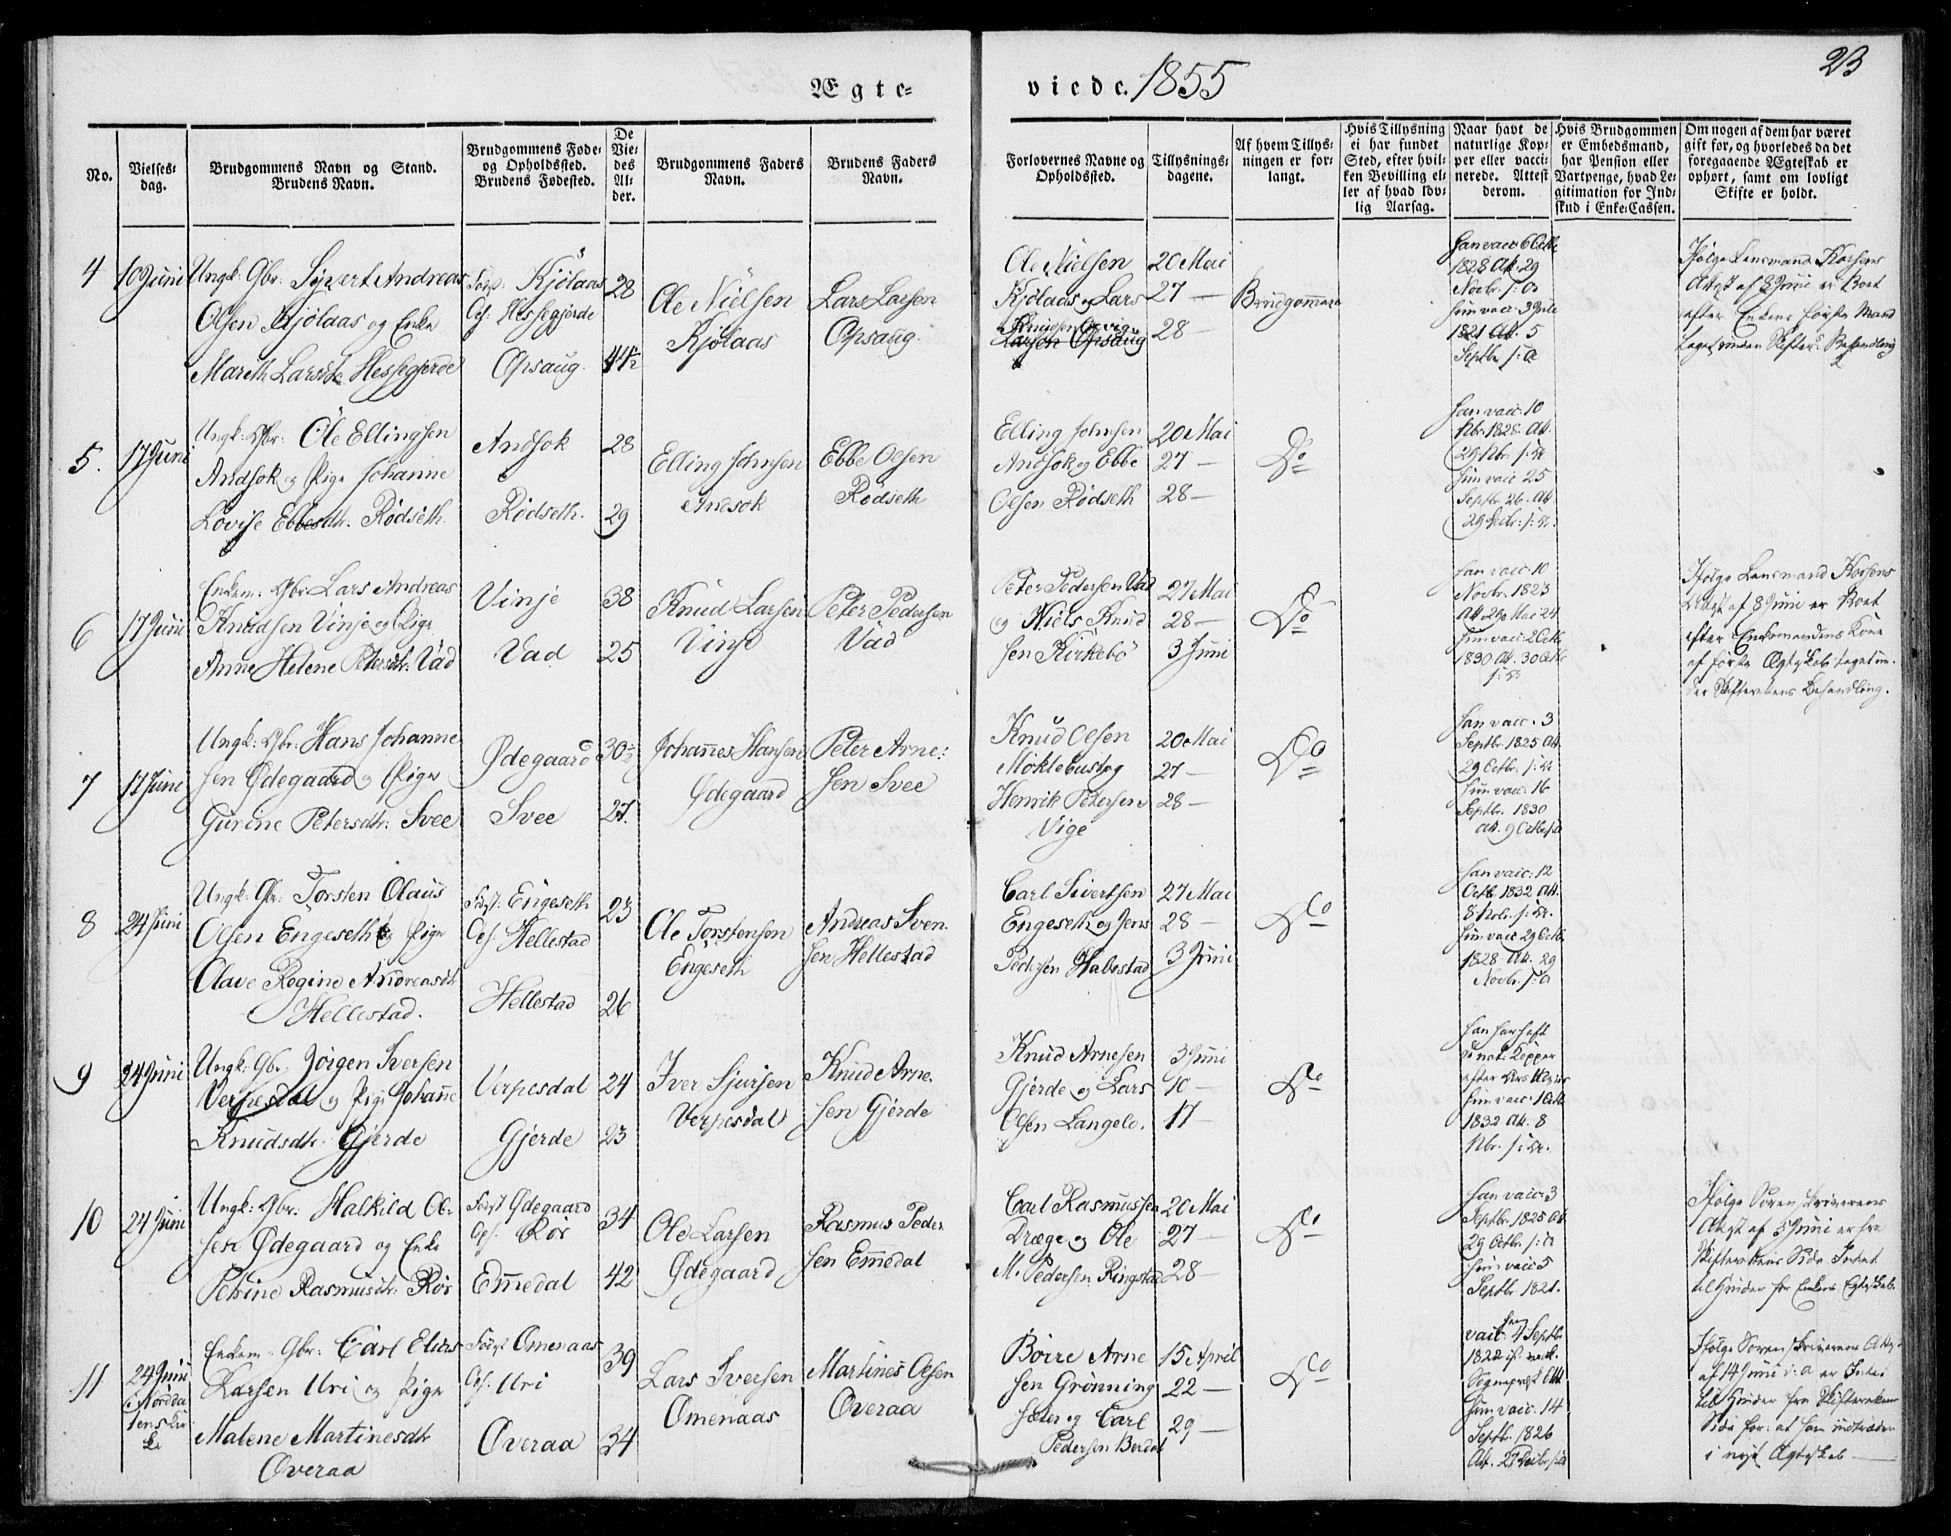 23
Ægte-
viede. 1855
No.
Vielses-
dag.
Brudgommens Navn og Stand.
Brudens Navn.
Brudgommens Føde-
og Opholdssted.
Brudens Fødested.
De
Vie-
des
Al-
der.
Brudgommens Faders
Navn.
Brudens Faders
Navn.
Forlovernes Navne og
Opholdssted.
Tillysnings-
dagene.
Af hvem Tillys-
ningen er for-
langt.
Hvis Tillysning
ei har fundet
Sted, efter hvil-
ken Bevilling el-
ler af hvad lov-
lig Aarsag.
Naar havt de
naturlige Kop-
per eller vacci-
nerede. Attest
derom.
Hvis Brudgommen
er Embedsmand,
har Pension eller
Vartpenge, hvad Le-
gitimation for Ind-
skud i Enke-Cassen.
Om nogen af dem har været
gift før, og hvorledes da det
foregaaende Ægteskab er
ophørt, samt om lovligt
Skifte er holdt.
4
10 Juni
Ungk: Gbr: Sivert Andreas
Olsen Kjölaas og Enke
Mareth Larsdtr Hessegjerde
Föst: Kjölaas
Ops: Hessegjerde
Opsaug
28
44½
Ole Nielsen
Kjölaas
Lars Larsen
Opsaug
Ole Nielsen
Kjölaas og Lars
Knudsen
Larsen Opsaug
20 Mai
27 —
28 —
Brudgommen
Han vacc: 6 Octb
1828 Att. 29
Novbr. s: A
Hun vacc: 3 Jule
1821 Att. 5
Septbr s: A
Ifølge Lensmand Korsens
Attest af 8 Juni er Boet
efter Enkens første Mand
taget under Skifter. Behandling
5.
17 Juni
Ungk: Gbr: Ole Ellingsen
Andsok og Pige Johanne
Lovise Ebbesdtr. Rödseth
Andsok
Rödseth.
28
29
Elling Johnsen
Andsok
Ebbe Olsen
Rödseth
Elling Johnsen
Andsok og Ebbe
Olsen Rödseth
20 Mai
27 —
28 —
Do
Han vacc: 10
Nbr. 1828. Att.
29 Nbr. s: A
Hun vacc 25
Septbr. 26. Att.
29 Decbr. s: A.
6
17 Juni
Enkem: Gbr Lars Andreas
Knudsen Vinje og Pige
Anne Helene Petersdtr: Vad
Vinje
Vad
38
25
Knud Larsen
Vinje
Peter Pedersen
Vad
Peter Pedersen Vad
og Niels Knud
sen Kirkebö
27 Mai
28 —
3 Juni
Do
Han vacc: 10
Novbr. 1823
Att 29 Mai 24
Hun vacc: 2 Octb
1830 Att. 30 Octb
s: A
Ifølge Lensmand Korsens
Attest af 8 Juni er Boet
efter Enkemandens Kone
af første Ægteskab taget un-
der Skifterettens Behandling.
7
17 Juni
Ungk: Gbr: Hans Johanne
sen Ødegaard og Pige
Gurine Petersdtr: Svee
Ødegaard
Svee
30½
27.
Johannes Hansen
Ødegaard
Peter Arne-
sen Svee
Knud Olsen
Möklebust og
Henrik Petersen
Vige
20 Mai
27 —
28 —
Do
Han vacc. 3
Septbr. 1825 Att.
29 Octbr. s: A
Hun vacc: 16
Septbr. 1830
Att. 9 Octbr s: A
8
24 Juni
Ungk: Gbr: Torsten Olaus
Olsen Engeseth og Pige
Olave Regine Andreasdtr
Hellestad.
Föst: Engeseth
Ops: Hellestad
Hellestad
23
26
Ole Torstensen
Engeseth
Andreas Sven-
sen Hellestad
Carl Sivertsen
Engeseth og Jens
Pedersen Habestad
27 Mai
28 —
3 Juni
Do
Han vacc: 12
Octb 1832 Att.
8 Nob. s: A.
Hun vacc 29 Octb.
1828 Att. 29
Novbr. s: A
9
24 Juni
Ungk: Gbr. Jörgen Iversen
Verpesdal og Pige Johanne
Knudsdtr: Gjerde
Verpesdal
Gjerde
24
23
Iver Sjursen
Verpesdal
Knud Arne-
sen Gjerde
Knud Arnesen
Gjerde og Lars
Olsen Langelo.
3 Juni
10 —
17 —
Do
Han har haft
de nat. Kopper
Hun vacc: 1 Octb
1832 Att. 8
Nbr. s: A.
10
24 Juni
Ungk: Gbr: Halkild Ol-
sen Ødegaard og Enke
Petrine Rasmusdtr: Rör
Föst Ødegaard
Ops: Rör
Emmedal
34
42
Ole Larsen
Ødegaard
Rasmus Peder
sen Emmedal
Carl Rasmussen
Dræge og Ole
M. Pedersen Ringstad
20 Mai
27 —
28 —
Do
Han vacc: 3
Septbr 1825 Att.
29 Octbr. s: A
Hun vacc: 5
Septbr. 1821.
Ifølge Sorenskriverens
Attest af 5 Juni er fra
Skifterettens Side Intet
til Hinder for Enkens Egteskab.
11
24 Juni
i Nordda
lens Kir
ke
Enkem: Gbr: Carl Elias
Larsen Uri og Pige
Malene Martinesdtr
Överaa
Föst Omenaas
Ops: Uri
Överaa
39
34
Lars Iversen
Omenaas
Martines Olsen
Överaa
Börre Arne
sen Grönning
sæter og Carl
Pedersen Berdal
15 April
22 —
29 —
Do
Han
vacc. 7 Septbr
1822
Hun vacc: 14
Septbr. 1826
Ifølge Sorenskriverens Attest
af 14 Juni d: A er Intet
til Hinder fra Skifterettens
Side for: at han indtræder
i nyt Ægteskab —